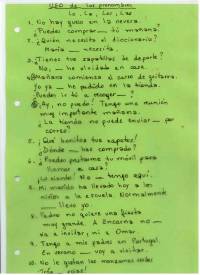 USO de los pronombres
Lo, La, Los, Las
1. No hay queso en la nevera.
¿Puedes comprar__ tú mañana?
2. ¿Quién necesita el diccionario?
María __ necesita.
3. ¿Tienes tus zapatillas de deporte?
No, __ he olvidado en casa.
4. Mañana comienza el curso de guitarra.
Yo ya __ he pedido en la tienda.
¿Puedes ir tú a recoger__?
¡Ay, no puedo! Tengo una reunión
muy importante mañana.
¿La tienda no puede enviar__ por
correo?
5. ¡Qué bonitos tus zapatos!
¿Dónde __ has comprado?
6. ¿Puedes prestarme tu móvil para
llamar a casa?
¡Lo siento! No __ tengo aquí.
7. Mi marido ha llevado hoy a los
niños a la escuela. Normalmente
__ llevo yo.
8. Pedro no quiere una fiesta
muy grande. A Encarna no __
va a invitar, ni a Omar.
9. Tengo a mis padres en Portugal.
En verano __ voy a visitar.
10. No le gustan las manzanas verdes
rojas